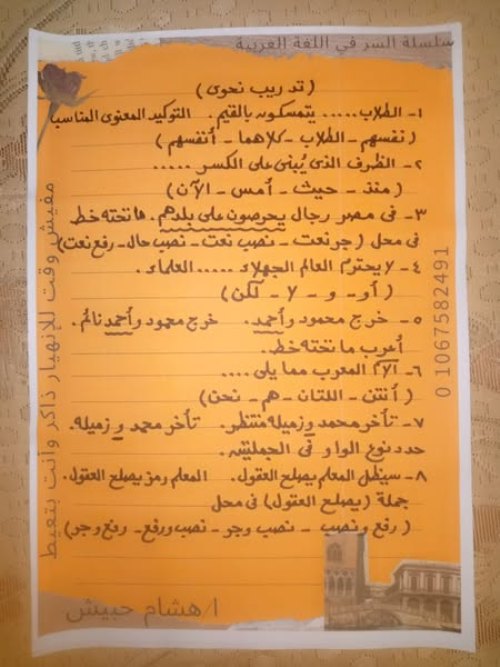 سلسلة السر في اللغة العربية
( تدريب نحوى )
١- الطلاب ..... يتمسكون بالقيم. التوكيد المعنوى المناسب
( نفسهم - الطلاب - كلاهما - أنفسهم )
٢- الظرف الذى يُبنى على الكسر .....
( منذ - حيث - أمس - الآن )
٣- فى مصر رجال يحرصون على بلدهم. ما تحته خط
فى محل ( جر نعت - نصب نعت - نصب حال - رفع نعت )
٤- لا يحترم العالم الجهلاء ..... العلماء.
( أو - و - لا - لكن )
٥- خرج محمود وأحمد. خرج محمود وأحمد نائم.
أعرب ما تحته خط.
٦- المعرب مما يلى ....
( أنتن - اللتان - هم - نحن )
٧- تأخر محمد وزميله منتظر. تأخر محمد وزميله.
حدد نوع الواو فى الجملتين.
٨- سيظل المعلم يصلح العقول. المعلم رمز يصلح العقول.
جملة ( يصلح العقول ) فى محل
( رفع ونصب - نصب وجر - نصب ورفع - رفع وجر )
ا/ هشام حبيش
مفيش وقت للإنهيار ذاكر وأنت بتعيط
0 1067582491